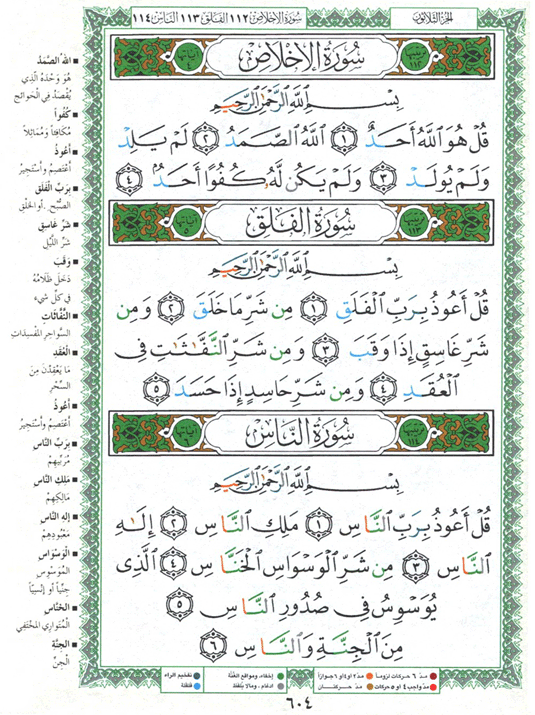 الجزء الثلاثون
سورة الإخلاص ١١٢ الفلق ١١٣ الناس ١١٤
سُورَةُ الإِخْلَاصِ
بِسْمِ ٱللَّهِ ٱلرَّحْمَٰنِ ٱلرَّحِيمِ
قُلْ هُوَ ٱللَّهُ أَحَدٌ ١ ٱللَّهُ ٱلصَّمَدُ ٢ لَمْ يَلِدْ
وَلَمْ يُولَدْ ٣ وَلَمْ يَكُن لَّهُۥ كُفُوًا أَحَدٌۢ ٤
سُورَةُ الفَلَقِ
بِسْمِ ٱللَّهِ ٱلرَّحْمَٰنِ ٱلرَّحِيمِ
قُلْ أَعُوذُ بِرَبِّ ٱلْفَلَقِ ١ مِن شَرِّ مَا خَلَقَ ٢ وَمِن
شَرِّ غَاسِقٍ إِذَا وَقَبَ ٣ وَمِن شَرِّ ٱلنَّفَّٰثَٰتِ فِى
ٱلْعُقَدِ ٤ وَمِن شَرِّ حَاسِدٍ إِذَا حَسَدَ ٥
سُورَةُ النَّاسِ
بِسْمِ ٱللَّهِ ٱلرَّحْمَٰنِ ٱلرَّحِيمِ
قُلْ أَعُوذُ بِرَبِّ ٱلنَّاسِ ١ مَلِكِ ٱلنَّاسِ ٢ إِلَٰهِ
ٱلنَّاسِ ٣ مِن شَرِّ ٱلْوَسْوَاسِ ٱلْخَنَّاسِ ٤ ٱلَّذِى
يُوَسْوِسُ فِى صُدُورِ ٱلنَّاسِ ٥
مِنَ ٱلْجِنَّةِ وَٱلنَّاسِ ٦
اللهُ الصَّمَدُ
هُوَ وَحْدَهُ الَّذِي
يُقْصَدُ فِي الْحَوَائِجِ
كُفُواً
مُكَافِئاً وَمُمَاثِلاً
أَعُوذُ
أَعْتَصِمُ وَأَسْتَجِيرُ
بِرَبِّ الْفَلَقِ
الصُّبْحِ. أو الخَلْقِ
شَرِّ غَاسِقٍ
شَرِّ اللَّيْلِ
وَقَبَ
دَخَلَ ظَلَامُهُ
فِي كُلِّ شَيء
النَّفَّاثَاتِ
السَّوَاحِرِ المُفْسِدَاتِ
الْعُقَدِ
مَا يَعْقِدْنَ مِنَ
السِّحْرِ
أَعُوذُ
أَعْتَصِمُ وَأَسْتَجِيرُ
بِرَبِّ النَّاسِ
مُرَبِّيهِمْ
مَلِكِ النَّاسِ
مَالِكِهِمْ
إِلَهِ النَّاسِ
مَعْبُودِهِمْ
الْوَسْوَاسِ
المُوَسْوِسِ
جِنِّيّاً أَوْ إِنْسِيّاً
الْخَنَّاسِ
الْمُتَوَارِي المُخْتَفِي
الْجِنَّةِ
الْجِنِّ
مدّ ٦ حركات لزوماً مدّ ٢ أو ٤ أو ٦ جوازاً
مدّ واجب ٤ أو ٥ حركات مدّ حركتان
إخفاء، ومواقع الغنّة
ادغام، وما لا يُلفظ
تفخيم الراء
قلقلة
٦٠٤